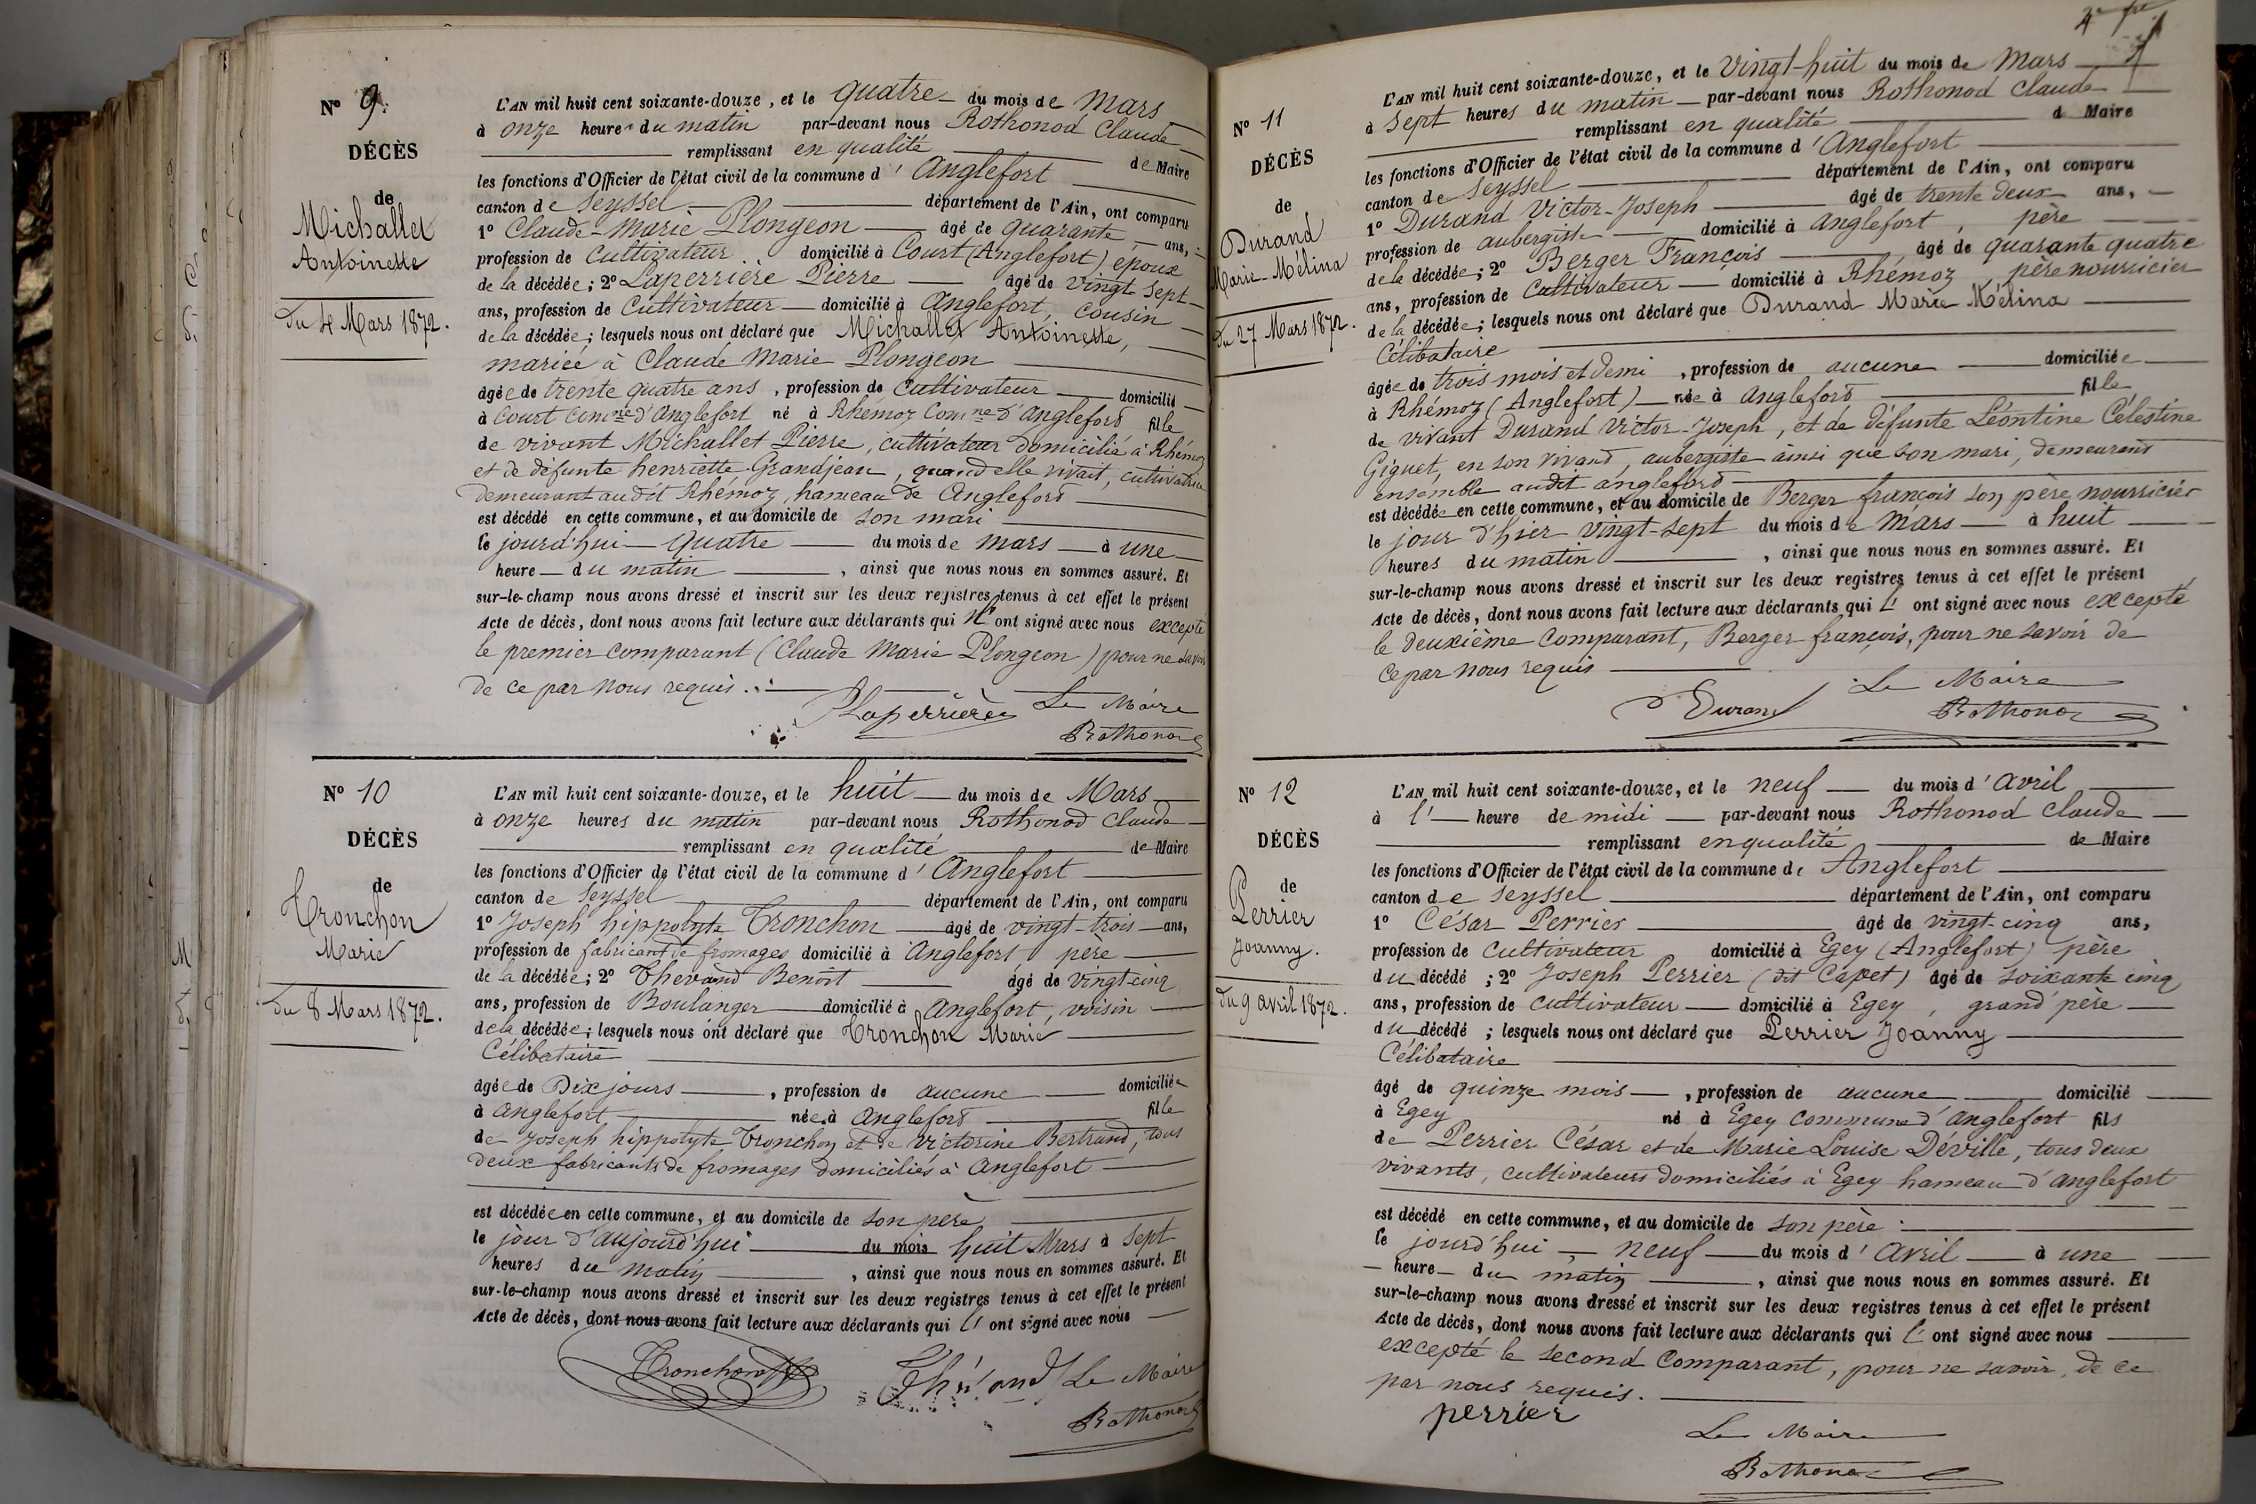 Nº 9.
DÉCÈS
de
Michallet
Antoinette
du 4 Mars 1872.
L'AN mil huit cent soixante-douze, et le quatre du mois de Mars
à onze heures du matin par-devant nous Rothonod Claude
remplissant en qualité de Maire
les fonctions d'Officier de l'état civil de la commune d'Anglefort
canton de Seyssel département de l'Ain, ont comparu
1º Claude-Marie Plongeon âgé de quarante ans,
profession de Cultivateur domicilié à Court (Anglefort) epoux
de la décédée; 2º Laperrière Pierre âgé de vingt sept
ans, profession de Cultivateur domicilié à Anglefort, cousin
de la décédée; lesquels nous ont déclaré que Michallet Antoinette,
mariée à Claude Marie Plongeon
âgée de trente quatre ans, profession de cultivateur domicilié
à Court Comne d'Anglefort né à Rhémoz Comne d'Anglefort fille
de vivant Michallet Pierre, cultivateur domicilié à Rhémoz
et de défunte henriette Grandjean, quand elle vivait, cultivatrice
demeurant au dit Rhémoz, hameau de Anglefort
est décédé en cette commune, et au domicile de son mari
le jourd'hui quatre du mois de mars à une
heure du matin, ainsi que nous nous en sommes assuré. Et
sur-le-champ nous avons dressé et inscrit sur les deux registres tenus à cet effet le présent
Acte de décès, dont nous avons fait lecture aux déclarants qui l' ont signé avec nous excepté
le premier comparant (Claude Marie Plongeon) pour ne savoir
de ce par nous requis.
Laperrière Le Maire
Rothonod
Nº 10
DÉCÈS
de
Tronchon
Marie
du 8 Mars 1872.
L'AN mil huit cent soixante-douze, et le huit du mois de Mars
à onze heures du matin par-devant nous Rothonod Claude
remplissant en qualité de Maire
les fonctions d'Officier de l'état civil de la commune d'Anglefort
canton de Seyssel département de l'Ain, ont comparu
1º Joseph hippolyte Tronchon âgé de vingt-trois ans,
profession de fabricant de fromages domicilié à Anglefort père
de la décédée; 2º Thevand Benoit âgé de vingt-cinq
ans, profession de Boulanger domicilié à Anglefort, voisin
de la décédée; lesquels nous ont déclaré que Tronchon Marie
Célibataire
âgée de Dix jours, profession de aucune domiciliée
à Anglefort née à Anglefort fille
de Joseph hippolyte Tronchon et de Victorine Bertrand, tous
deux fabricants de fromages domiciliés à Anglefort
est décédée en cette commune, et au domicile de son père
le jour d'aujourd'hui du mois huit Mars à sept
heures du matin, ainsi que nous nous en sommes assuré. Et
sur-le-champ nous avons dressé et inscrit sur les deux registres tenus à cet effet le présent
Acte de décès, dont nous avons fait lecture aux déclarants qui l' ont signé avec nous
Tronchon Le Maire
Rothonod
Nº 11
DÉCÈS
de
Durand
Marie-Mélina
du 27 Mars 1872.
L'AN mil huit cent soixante-douze, et le vingt-huit du mois de Mars
à sept heures du matin par-devant nous Rothonod Claude
remplissant en qualité d Maire
les fonctions d'Officier de l'état civil de la commune d'Anglefort
canton de Seyssel département de l'Ain, ont comparu
1º Durand Victor-Joseph âgé de trente deux ans,
profession de aubergiste domicilié à Anglefort, père
de la décédée; 2º Berger François âgé de quarante quatre
ans, profession de Cultivateur domicilié à Rhémoz père nourricier
de la décédée; lesquels nous ont déclaré que Durand Marie Mélina
Célibataire
âgée de trois mois et demi, profession de aucune domiciliée
à Rhémoz (Anglefort) née à Anglefort fille
de vivant Durand Victor-Joseph, et de défunte Léontine Célestine
Giguet, en son vivant, aubergiste ainsi que son mari, demeurant
ensemble audit anglefort
est décédée en cette commune, et au domicile de Berger françois son père nourricier
le jour d'hier vingt-sept du mois de Mars à huit
heures du matin, ainsi que nous nous en sommes assuré. Et
sur-le-champ nous avons dressé et inscrit sur les deux registres tenus à cet effet le présent
Acte de décès, dont nous avons fait lecture aux déclarants qui l' ont signé avec nous excepté
le deuxième comparant, Berger françois, pour ne savoir de
ce par nous requis
Durand Le Maire
Rothonod
Nº 12
DÉCÈS
de
Perrier
Joanny.
du 9 avril 1872.
L'AN mil huit cent soixante-douze, et le neuf du mois d'avril
à l' heure de midi par-devant nous Rothonod Claude
remplissant en qualité de Maire
les fonctions d'Officier de l'état civil de la commune de Anglefort
canton de Seyssel département de l'Ain, ont comparu
1º César Perrier âgé de vingt-cinq ans,
profession de cultivateur domicilié à Egey (Anglefort) père
du décédé; 2º Joseph Perrier (dit Capet) âgé de soixante cinq
ans, profession de cultivateur domicilié à Egey, grand père
du décédé; lesquels nous ont déclaré que Perrier Joanny
Célibataire
âgé de quinze mois, profession de aucune domicilié
à Egey né à Egey commune d'anglefort fils
de Perrier César et de Marie Louise Déville, tous deux
vivants, cultivateurs domiciliés à Egey hameau d'anglefort
est décédé en cette commune, et au domicile de son père
le jourd'hui neuf du mois d'avril à une
heure du matin, ainsi que nous nous en sommes assuré. Et
sur-le-champ nous avons dressé et inscrit sur les deux registres tenus à cet effet le présent
Acte de décès, dont nous avons fait lecture aux déclarants qui l' ont signé avec nous
excepté le second comparant, pour ne savoir, de ce
par nous requis.
perrier
Le Maire
Rothonod